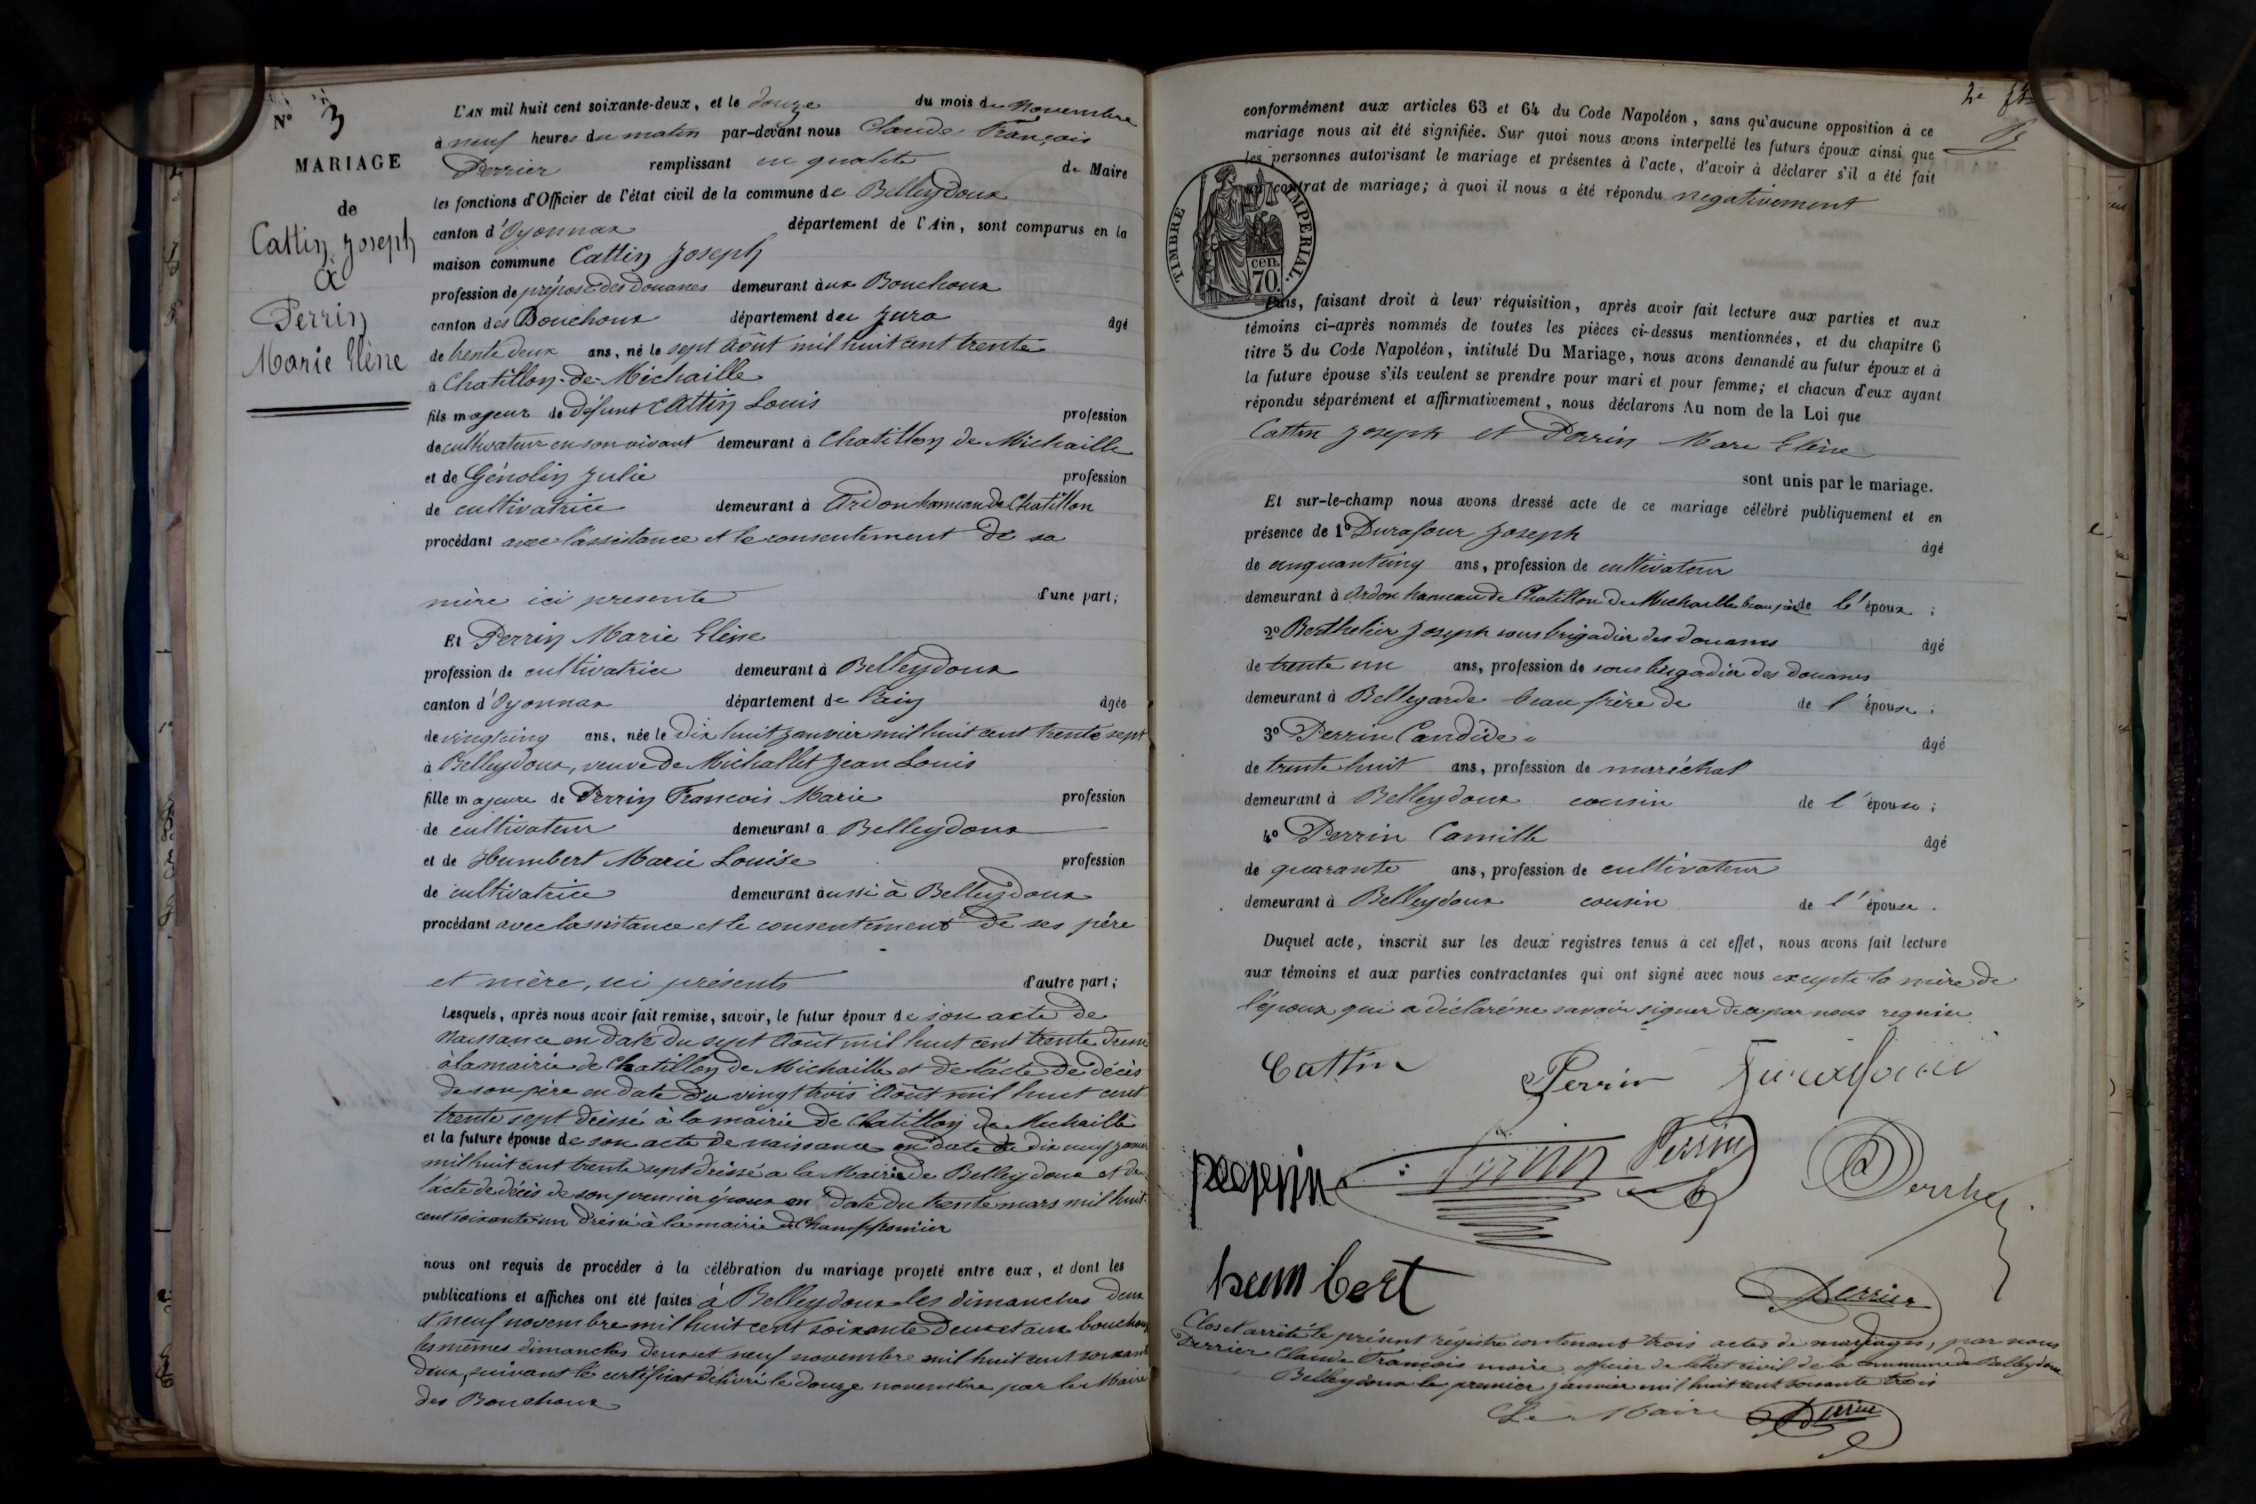 N° 3
MARIAGE
de
Cattin Joseph
à
Perrin
Marie Elène
L'AN mil huit cent soixante-deux, et le douze du mois de Novembre
à neuf heures du matin par-devant nous Claude François
Perrier remplissant en qualité de Maire
les fonctions d'Officier de l'état civil de la commune de Belleydoux
canton d'Oyonnax département de l'Ain, sont comparus en la
maison commune Cattin Joseph
profession de préposé des douanes demeurant aux Bouchoux
canton des Bouchoux département du Jura âgé
de trente deux ans, né le sept août mil huit cent trente
à Chatillon-de-Michaille
fils majeur de défunt Cattin Louis profession
de cultivateur en son vivant demeurant à Chatillon de Michaille
et de Génolin Julie profession
de cultivatrice demeurant à Ardon hameau de Chatillon
procédant avec l'assistance et le consentement de sa
mère ici presente d'une part;
Et Perrin Marie Elène
profession de cultivatrice demeurant à Belleydoux
canton d'Oyonnax département de l'ain âgée
de vingtcinq ans, née le dix huit janvier mil huit cent trente sept
à Belleydoux, veuve de Michallet Jean Louis
fille majeure de Perrin François Marie profession
de cultivateur demeurant a Belleydoux
et de Humbert Marie Louise profession
de cultivatrice demeurant aussi à Belleydoux
procédant avec l'assistance et le consentement de ses père
et mère, ici présents d'autre part;
Lesquels, après nous avoir fait remise, savoir, le futur époux de son acte de
Naissance en date du sept Août mil huit cent trente
à la mairie de Chatillon de Michaille et de l'acte de décès
de son père en date du vingt trois Août mil huit cent
trente sept dréssé à la mairie de Chatillon de Michaille
et la future épouse de son acte de naissance en date du dix neuf janvier
mil huit cent trente sept dréssé a la Mairie de Belleydoux et de
l'acte de décès de son premier époux en date du trente mars mil huit
cent soixante un dréssé à la mairie de Champfromier
nous ont requis de procéder à la célébration du mariage projeté entre eux, et dont les
publications et affiches ont été faites à Belleydoux les dimanches deux
& neuf novembre mil huit cent soixante deux et aux bouchoux
les mêmes dimanches deux et neuf novembre mil huit cent soixante
deux, suivant le certificat délivré le douze novembre par le Maire
des Bouchoux
conformément aux articles 63 et 64 du Code Napoléon, sans qu'aucune opposition à ce
mariage nous ait été signifiée. Sur quoi nous avons interpellé les futurs époux ainsi que
les personnes autorisant le mariage et présentes à l'acte, d'avoir à déclarer s'il a été fait
contrat de mariage; à quoi il nous a été répondu negativement
TIMBRE IMPERIAL
cen.
70.
Puis, faisant droit à leur réquisition, après avoir fait lecture aux parties et aux
témoins ci-après nommés de toutes les pièces ci-dessus mentionnées, et du chapitre 6
titre 5 du Code Napoléon, intitulé Du Mariage, nous avons demandé au futur époux et à
la future épouse s'ils veulent se prendre pour mari et pour femme; et chacun d'eux ayant
répondu séparément et affirmativement, nous déclarons Au nom de la Loi que
Cattin Joseph et Perrin Marie Elène
sont unis par le mariage.
Et sur-le-champ nous avons dressé acte de ce mariage célébré publiquement et en
présence de 1° Durafour Joseph âgé
de cinquantcinq ans, profession de cultivateur
demeurant à Ardon hameau de Chatillon de Michaille beau père de l'époux;
2° Berthelier Joseph sous brigadier des douanes âgé
de trente un ans, profession de sous brigadier des douanes
demeurant à Bellegarde beau frère de de l'épouse;
3° Perrin Candide âgé
de trente huit ans, profession de maréchal
demeurant à Belleydoux cousin de l'épouse;
4° Perrin Camille âgé
de quarante ans, profession de cultivateur
demeurant à Belleydoux cousin de l'épouse.
Duquel acte, inscrit sur les deux registres tenus à cet effet, nous avons fait lecture
aux témoins et aux parties contractantes qui ont signé avec nous excepté la mère de
l'époux qui a déclaré ne savoir signer de ce par nous requise
Cattin Perrin
Perrin
humbert Perrier
Clos et arrêté le présent régistre contenant trois actes de mariages, par nous
Perrier Claude François maire officier de l'état civil de la commune de Belleydoux
Belleydoux le premier janvier mil huit cent soixante trois
Le Maire Perrier